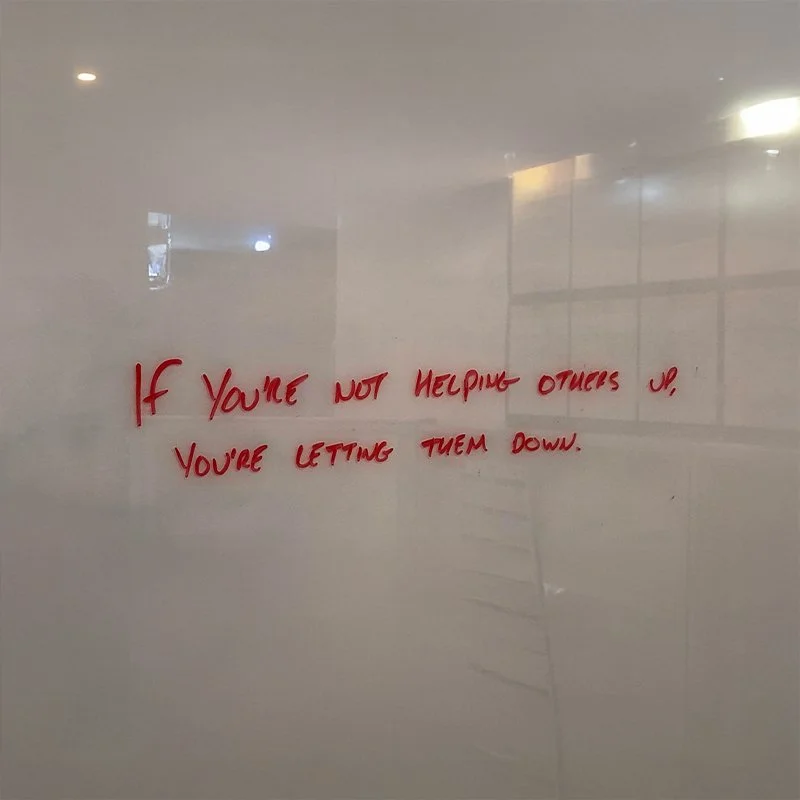 If YOU'RE NOT HELPING OTHERS UP,
YOU'RE LETTING THEM DOWN.